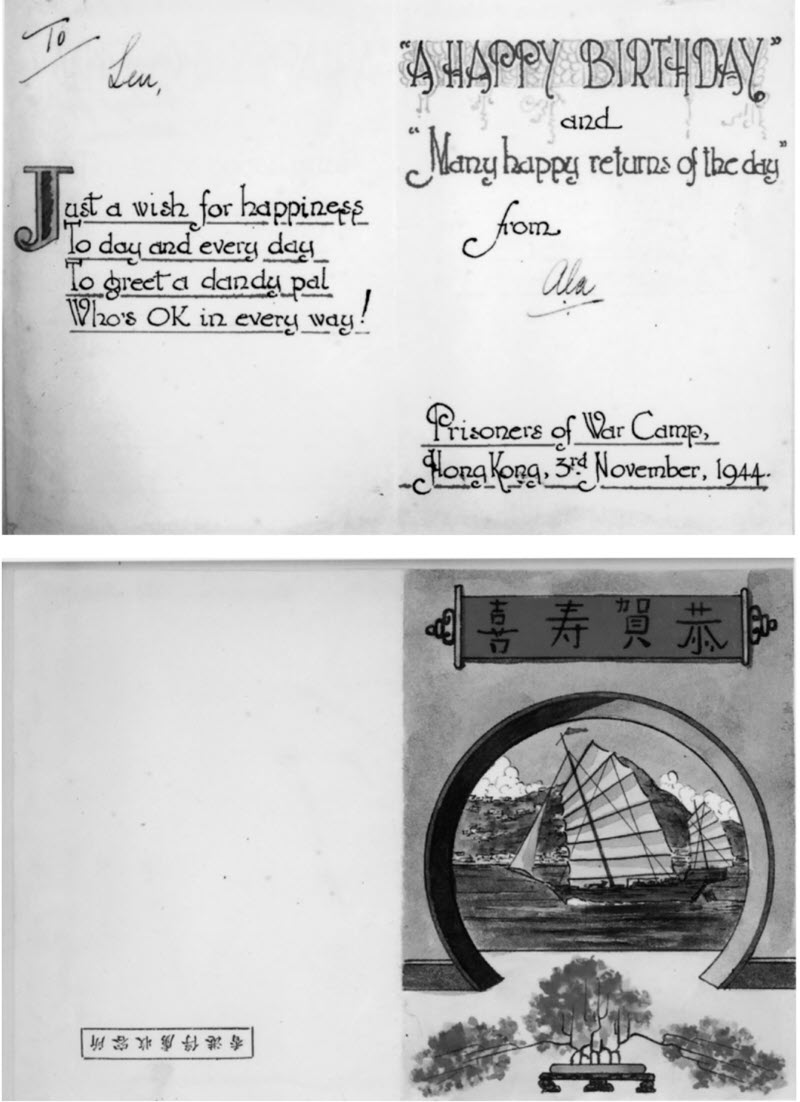 To
Len,
Just a wish for happiness
To day and every day
To greet a dandy pal
Who's OK in every way!
"A HAPPY BIRTHDAY"
and
"Many happy returns of the day"
from
Prisoners of War Camp,
Hong Kong, 3rd November, 1944.
恭賀寿喜
香港俘虜收容所